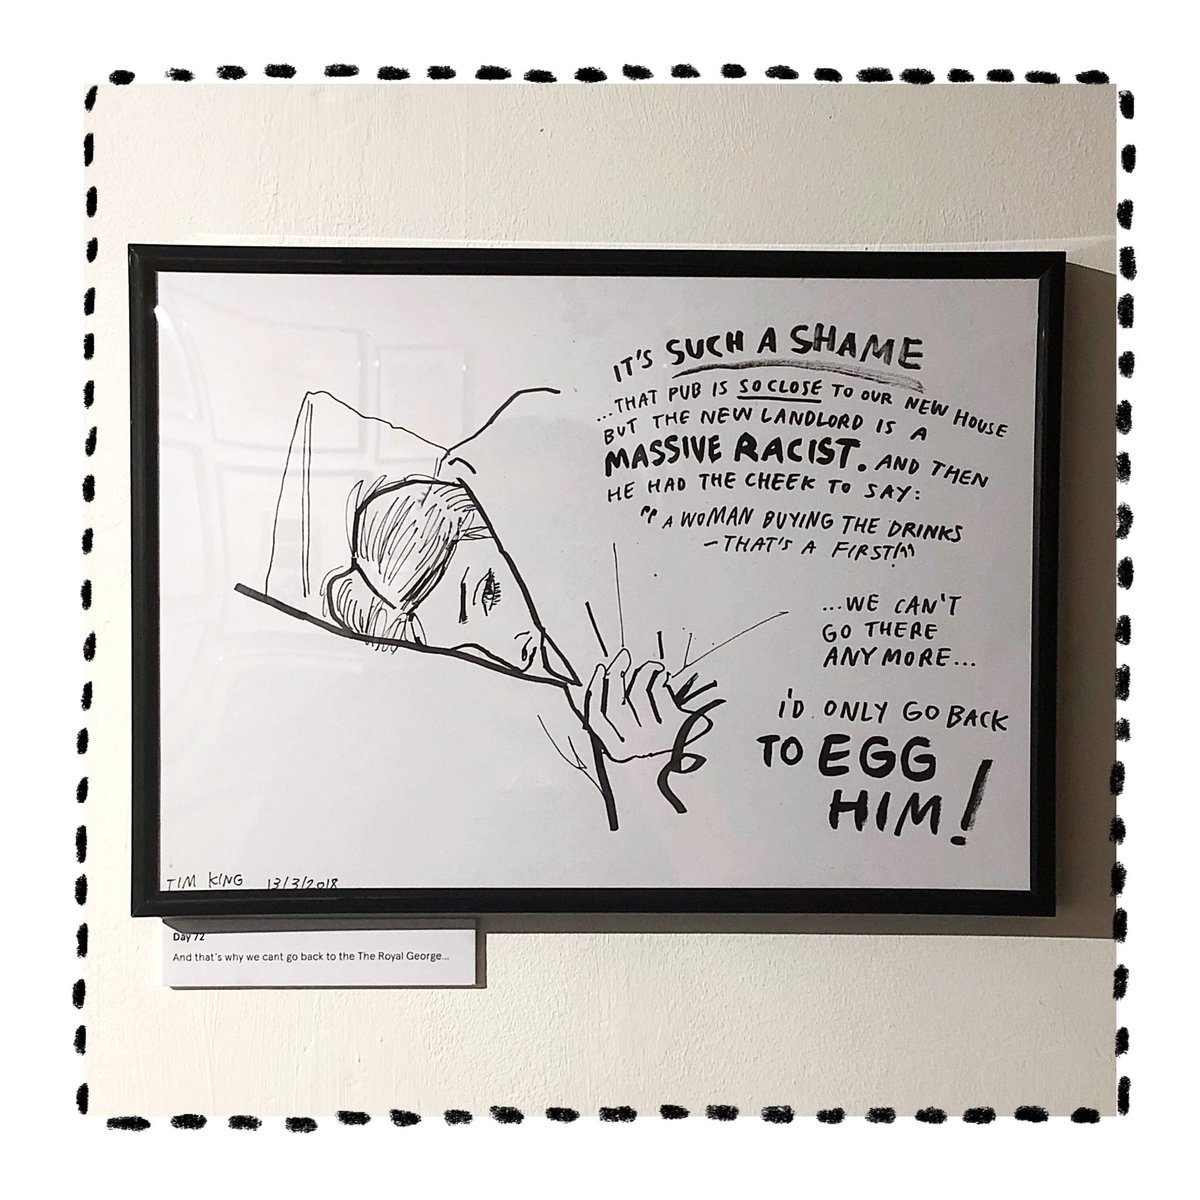 IT'S SUCH A SHAME
...THAT PUB IS SO CLOSE TO OUR NEW HOUSE
BUT THE NEW LANDLORD IS A
MASSIVE RACIST. AND THEN
HE HAD THE CHEEK TO SAY:
"A WOMAN BUYING THE DRINKS
-THAT'S A FIRST!"
...WE CAN'T
GO THERE
ANYMORE...
I'D ONLY GO BACK
TO EGG
HIM!
TIM KING 13/3/2018
Day 72
And that's why we cant go back to the The Royal George...